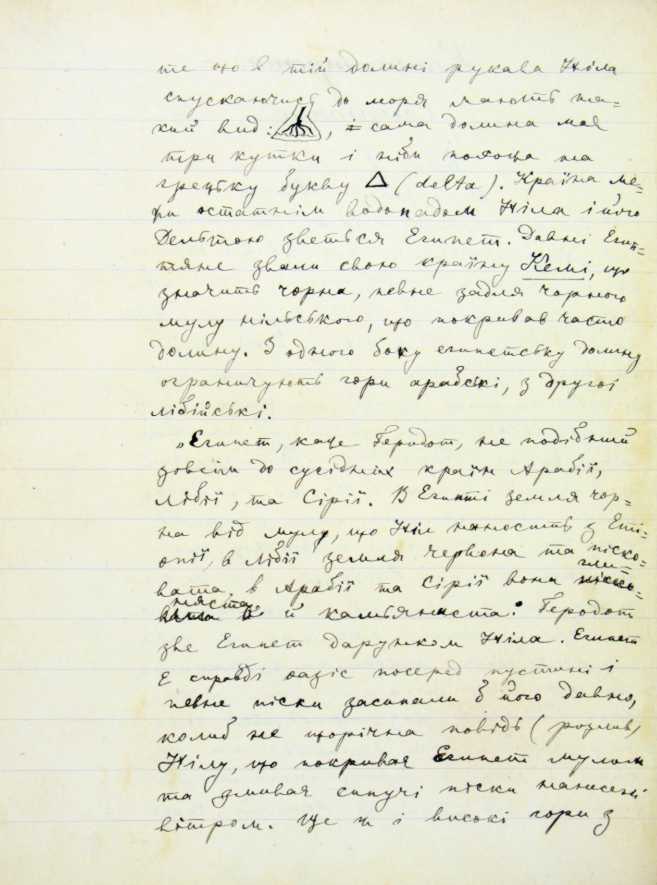 те що в тій долині рукава Ніла
спускаючись до моря мають та-
кий вид: , і сама долина має
три кутки і ніби похожа на
грецьку букву Δ (delta). Країна ме-
жи остатнім водопадом Ніла і його
Дельтою зветься Египет. Давні Егип-
тяне звали свою країну Кемі, що
значить чорна, певне задля чорного
мулу нільського, що покривав часто
долину. З одного боку египетську долину
ограничують гори арабські, з другої
лібійські.
„Египет, каже Геродот, не подібний
зовсім до сусідніх країн Арабії,
Лібії, та Сірії. В Египті земля чор-
на від мулу, що Ніл наносить з Еті-
опії, в Лібії земля червона та піско-
вата, в Арабії та Сірії вона гли-
няста й камъяниста". Геродот
зве Египет дарунком Ніла. Египет
є справді оазіс посеред пустині і
певне піски засипали б його давно,
колиб не щорічна повідь (розлив)
Нілу, що покриває Египет мулом
та змиває сипучі піски нанесені
вітром. Ще ж і високі гори з